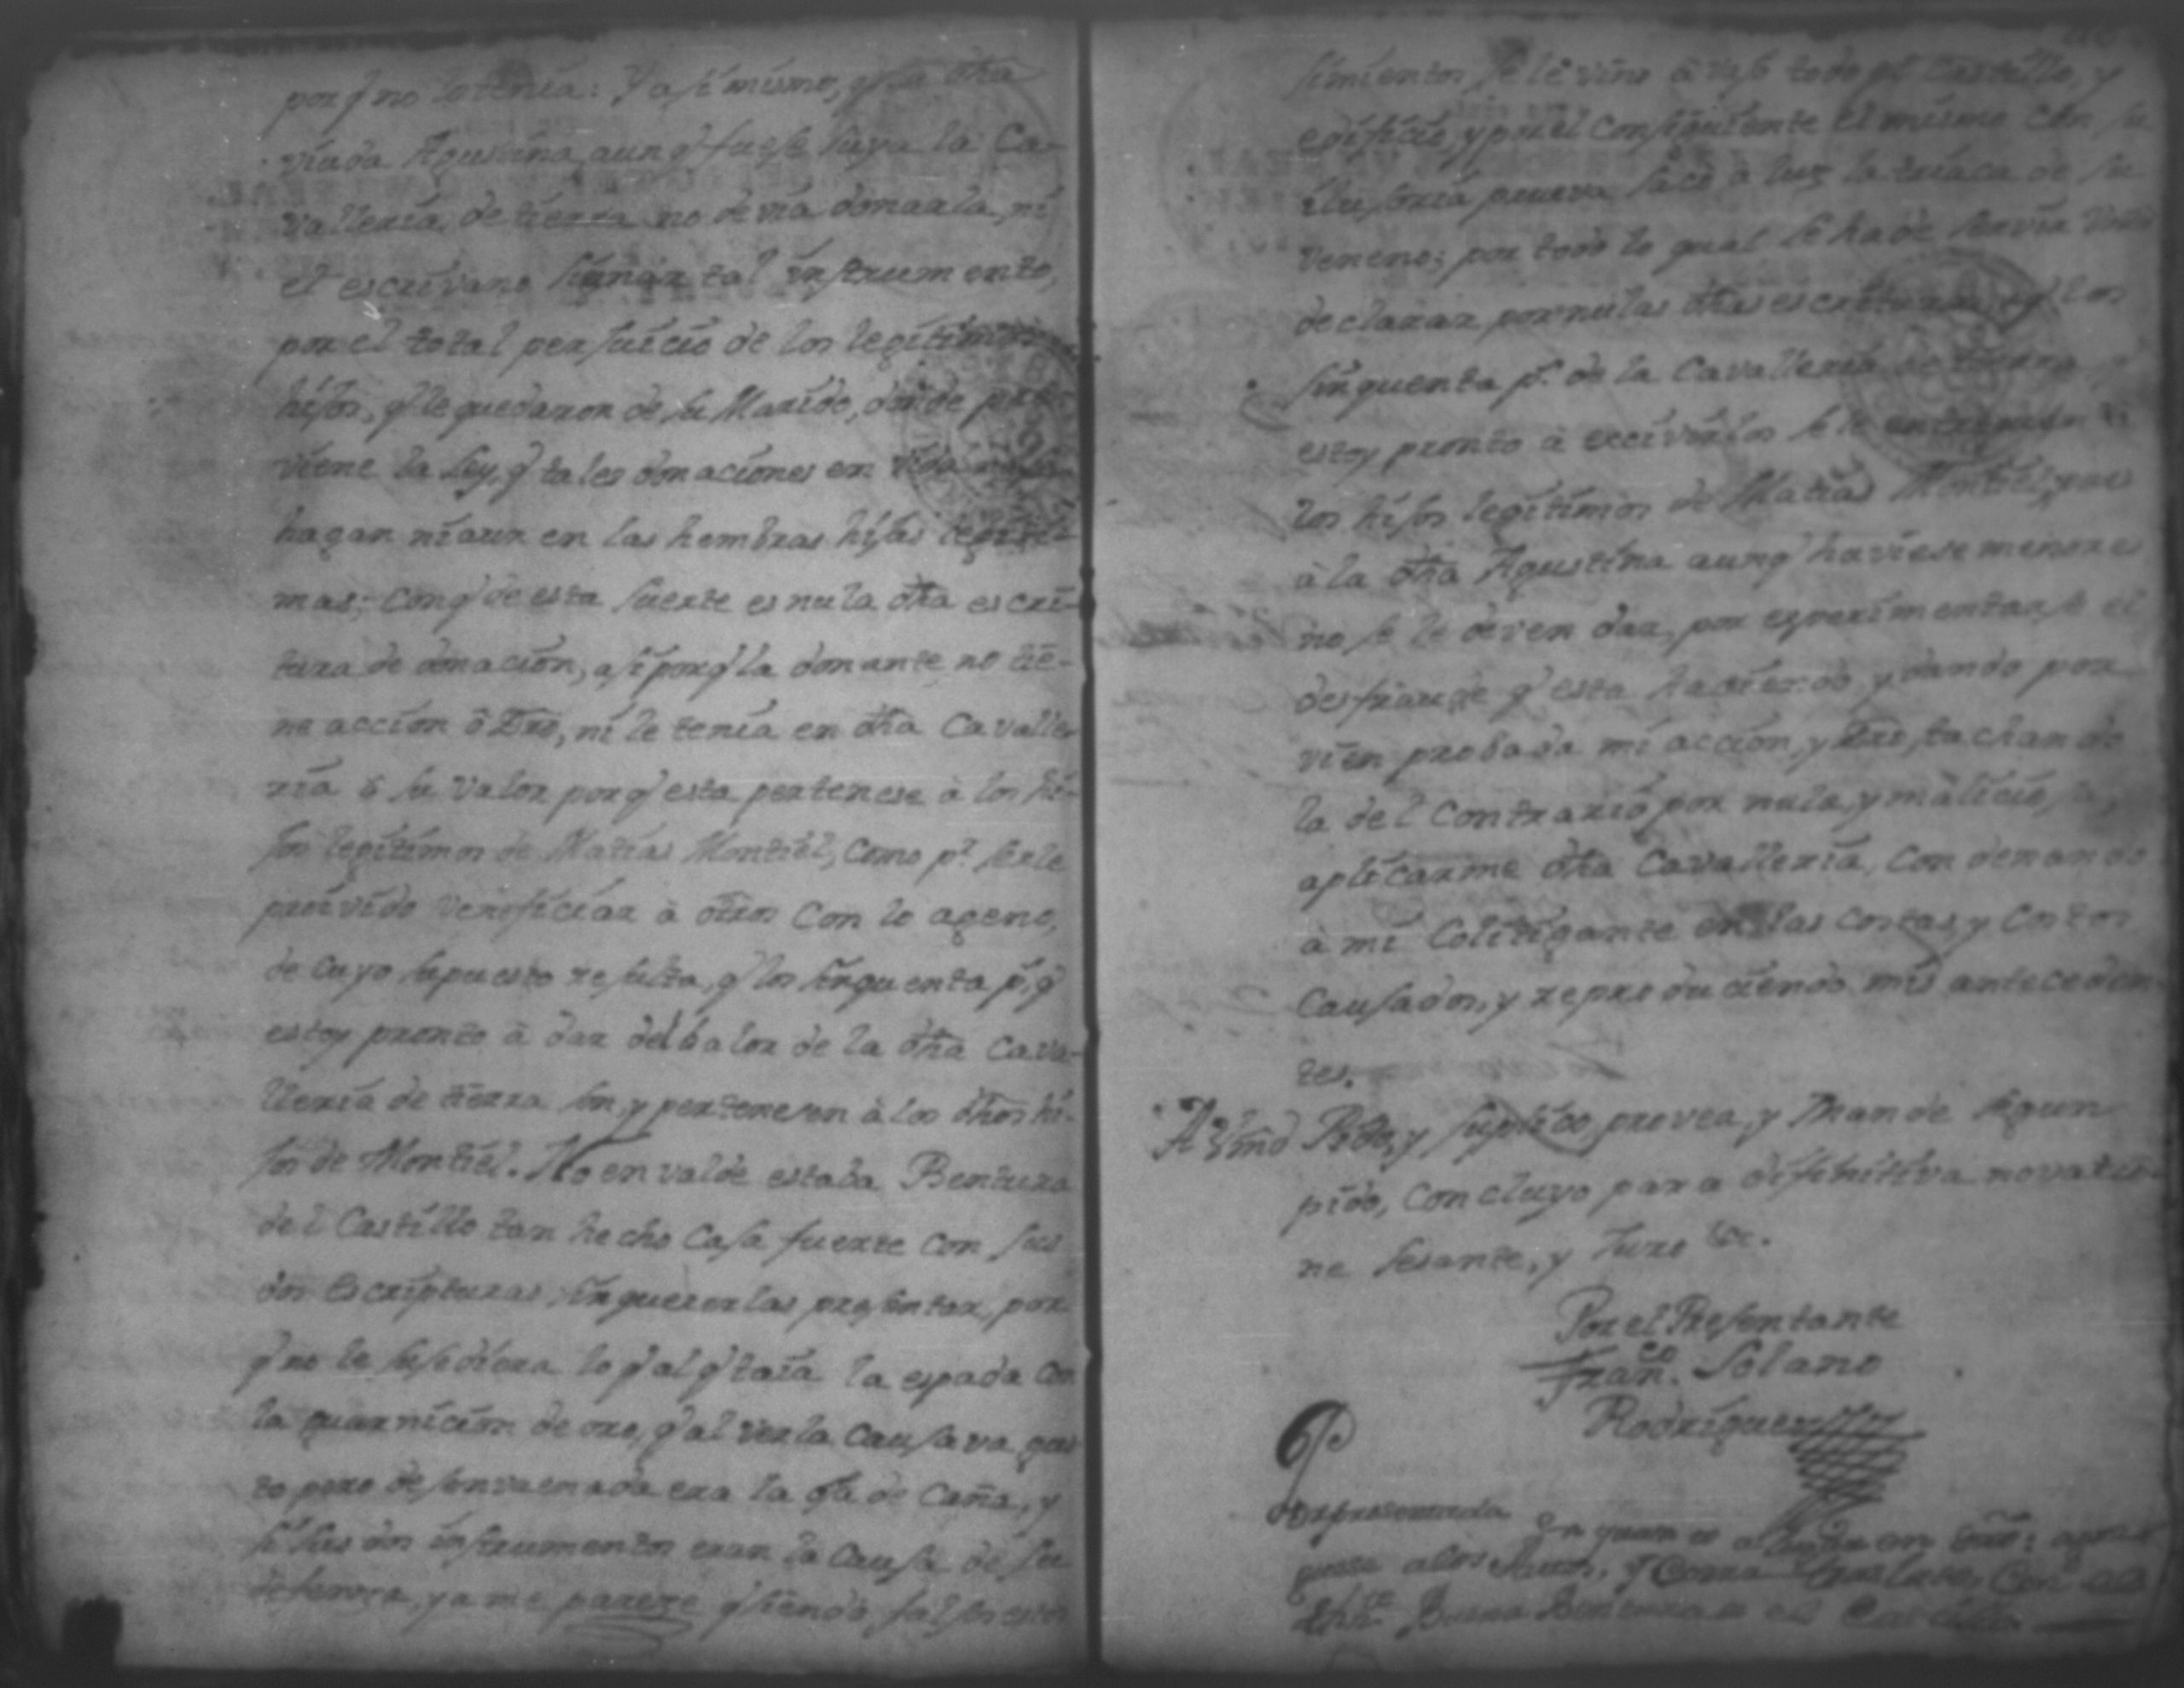 porq̃ no lo tenia: Y asi mismo, q̃ la dha
viuda Agustina aunq̃ fuese suya la Ca-
valleria de tierra no devia donarla, ni
el escrivano signar tal instrumento,
por el total perjuicio de los legitimos
hijos, q̃ le quedaron de su Marido, donde pre-
viene la ley, q̃ tales donaciones en vida
hagan ni aun en las hembras hijas legiti-
mas; conq̃ de esta suerte es nula dha escri-
tura de donacion, asi porq̃ la donante no tie-
ne accion ô Dro, ni le tenia en dha Cavalle-
ria ô su valor porq̃ esta pertenese à los hi-
jos legitimos de Matias Montiel, como pr. serle
proivido veneficiar à otros con lo ageno,
de cuyo supuesto resulta, q̃ los sinquenta ps. q̃
estoy pronto à dar del balor de la dha Cava-
lleria de tierra son, y pertenesen à los dhos hi-
jos de Montiel. No en valde estaba Bentura
del Castillo tan hecho Casa fuerte con sus
dos Escripturas, sin quererlas presentar, por
q̃ no le susediera lo q̃ al q̃ traia la espada con
la guarnicion de oro, q̃ al verla causava gus-
to pero desenvaenada era la oja de Caña, y
si sus dos instrumentos eran la causa de su
defensa, ya me parese q̃ siendo falsos estos
simientos, se le vino à vajo todo el Castillo, y
edificio, y por el consiguiente el mismo con su
ilusoria prueva sacó à luz la triaca de su
veneno; por todo lo qual se ha de servir Vmd
declarar por nulas dhas escrituras, y q̃ los
sinquenta ps. de la Cavalleria de tierra q̃
estoy pronto à excivirlos se le entreguen à
los hijos legitimos de Matias Montiel, pues
à la dha Agustina aunq̃ haviese menores
no se le deven dar, por experimentarse el
desfraude q̃ esta haciendo, y dando por
vien probada mi accion, y Dro, tachando
la del contrario por nula, y maliciosa,
aplicarme dha Cavalleria, condenando
à mi Colitigante en las costas, y costos
causados, y reproduciendo mis anteceden-
tes.
A Vmd Pido, y suplico, provea, y Mande segun
pido, concluyo para difinitiva novacio-
ne sesante, y Juro &c.
Por el Presentante
Franco. Solano
Rodriguez
Por presentada en quanto a lugar en dro: agre
guese a los Autos, y Corra traslado, con el
dho Buena Bentura del Castillo